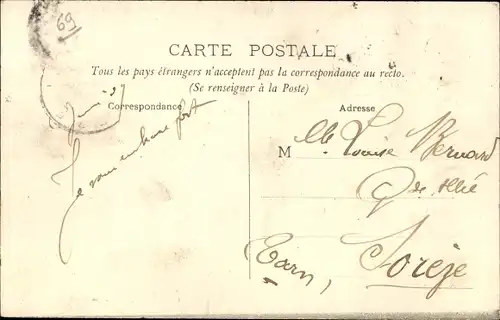 69
CARTE POSTALE
Tous les pays étrangers n'acceptent pas la correspondance au recto.
(Se renseigner à la Poste)
Correspondance
Adresse
Je vous embrasse fort
M lle Louise Bernard
Sorèze
Tarn,